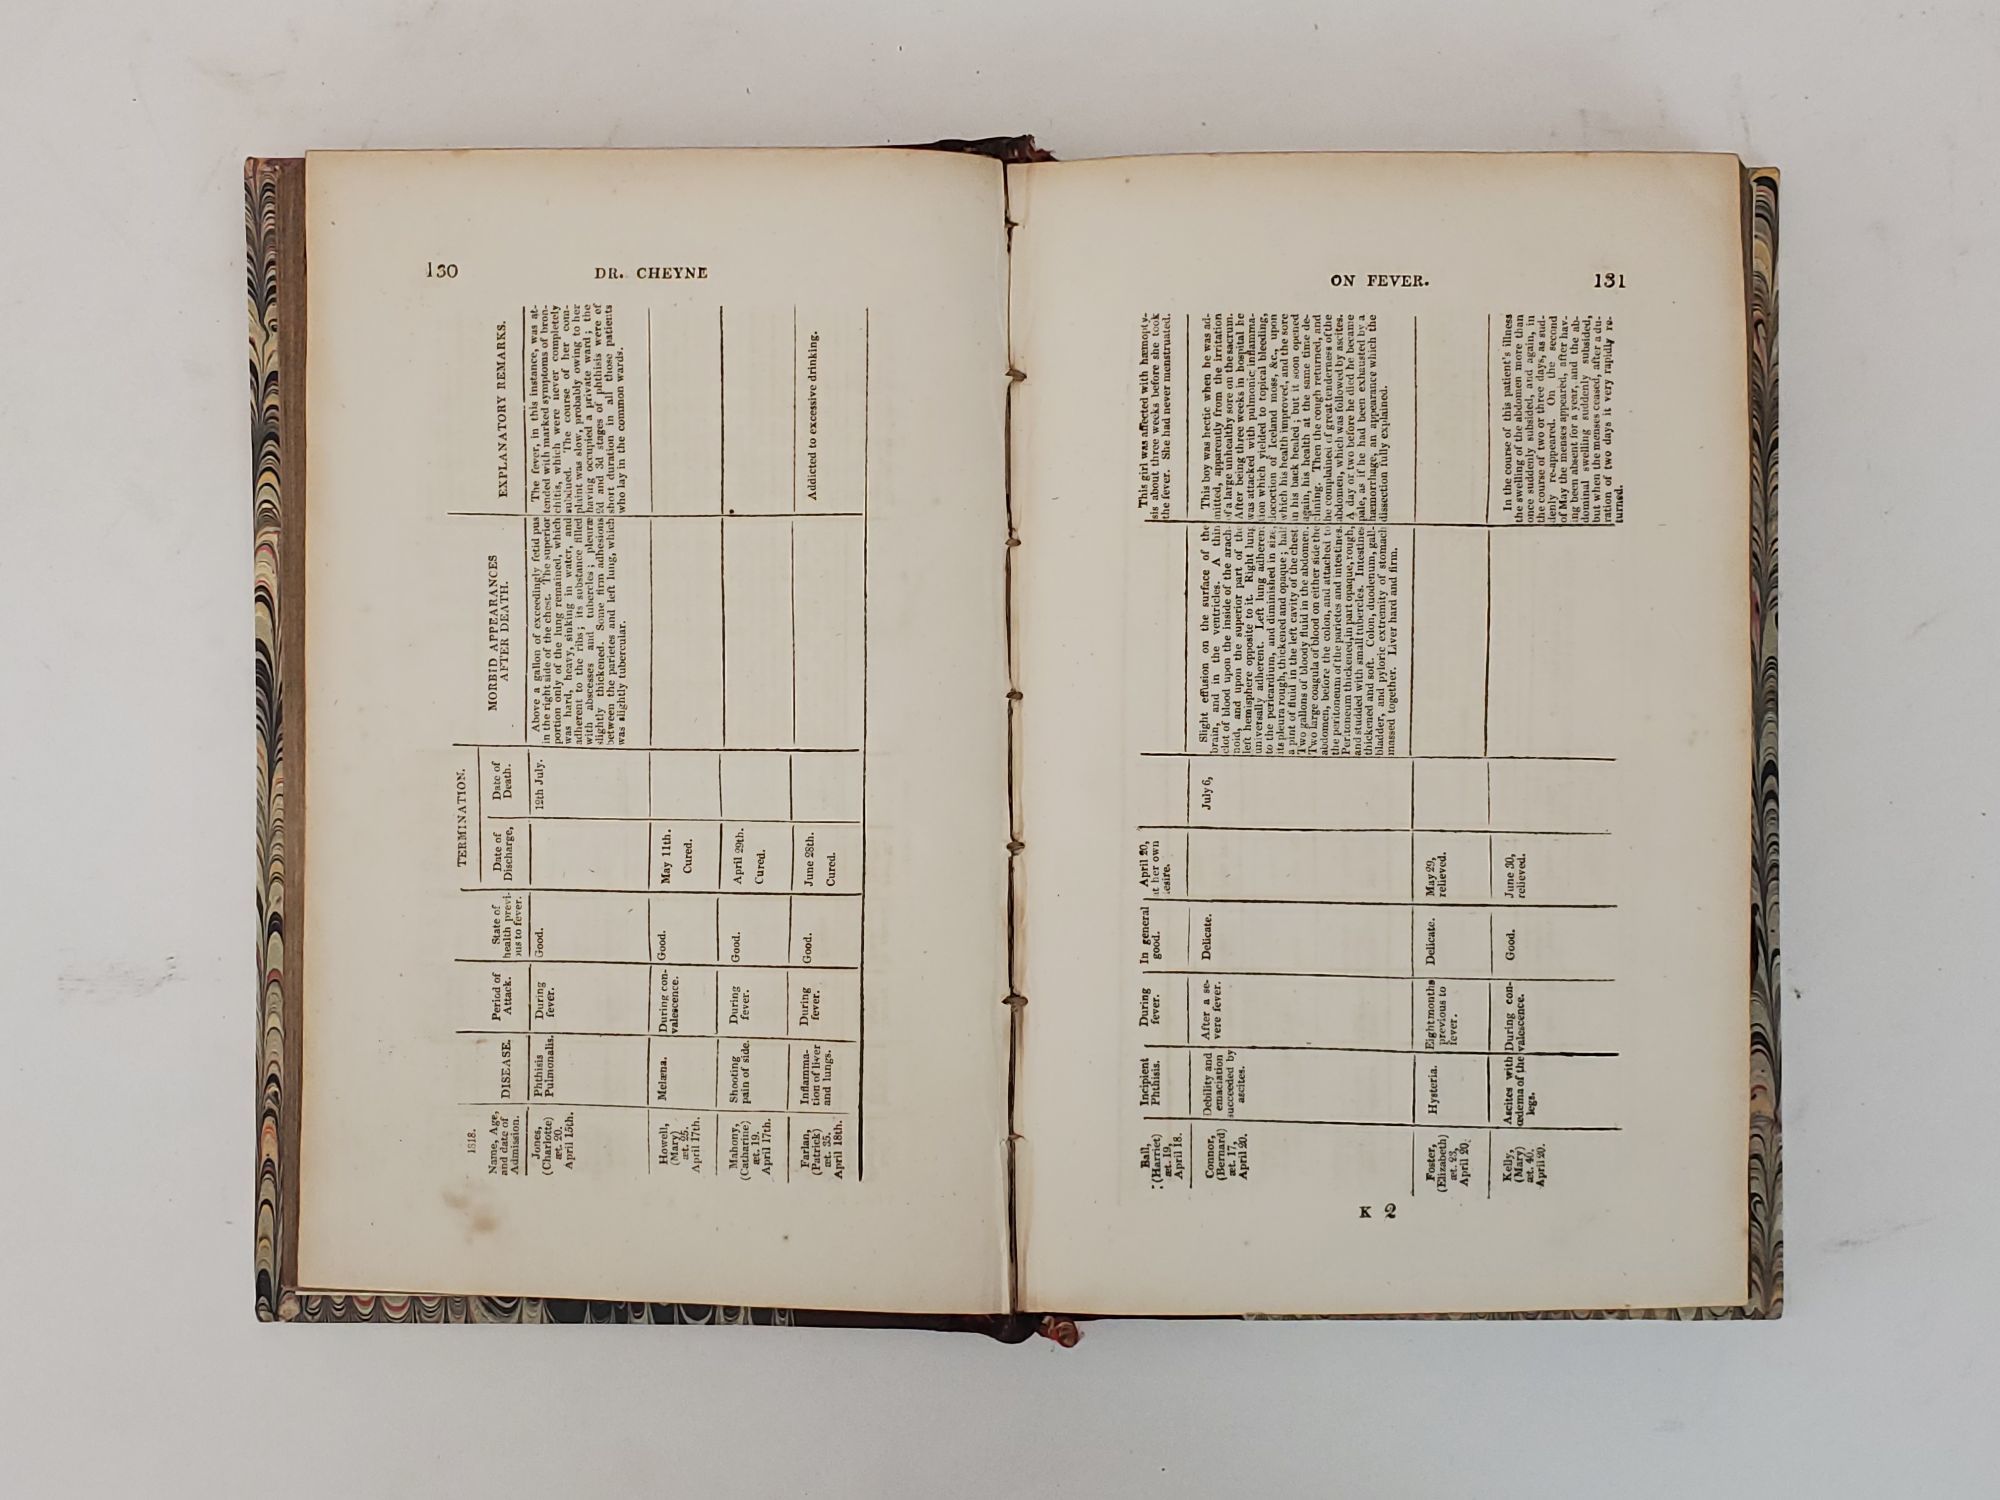 130
DR. CHEYNE
1818.
Name, Age,
and date of
Admission.
DISEASE.
Period of
Attack.
State of
health previ-
ous to fever.
TERMINATION.
Date of
Discharge,
Date of
Death.
MORBID APPEARANCES
AFTER DEATH.
EXPLANATORY REMARKS.
Jones,
(Charlotte)
æt. 20.
April 15th.
Phthisis
Pulmonalis.
During
fever.
Good.
12th July.
Above a gallon of exceedingly fetid pus
in the right side of the chest. The superior
portion only of the lung remained, which
was hard, heavy, sinking in water, and
adherent to the ribs; its substance filled
with abscesses and tubercles; pleuræ
slightly thickened. Some firm adhesions
between the parietes and left lung, which
was slightly tubercular.
The fever, in this instance, was at-
tended with marked symptoms of bron-
chitis, which were never completely
subdued. The course of her com-
plaint was slow, probably owing to her
having occupied a private ward; the
2d and 3d stages of phthisis were of
short duration in all those patients
who lay in the common wards.
Howell,
(Mary)
æt. 25.
April 17th.
Melæna.
During con-
valescence.
Good.
May 11th.
Cured.
Mahony,
(Catharine)
æt. 19.
April 17th.
Shooting
pain of side.
During
fever.
Good.
April 29th.
Cured.
Farlan,
(Patrick)
æt. 35.
April 18th.
Inflamma-
tion of liver
and lungs.
During
fever.
Good.
June 28th.
Cured.
Addicted to excessive drinking.
ON FEVER.
131
Ball,
(Harriet)
æt. 19,
April 18.
Incipient
Phthisis.
During
fever.
In general
good.
April 20,
at her own
desire.
This girl was affected with hæmopty-
sis about three weeks before she took
the fever. She had never menstruated.
Connor,
(Bernard)
æt. 17,
April 20.
Debility and
emaciation
succeeded by
ascites.
After a se-
vere fever.
Delicate.
July 6,
Slight effusion on the surface of the
brain, and in the ventricles. A thin
clot of blood upon the inside of the arach-
noid, and upon the superior part of the
left hemisphere opposite to it. Right lung
universally adherent. Left lung adherent
to the pericardium, and diminished in size,
its pleura rough, thickened and opaque; half
a pint of fluid in the left cavity of the chest.
Two gallons of bloody fluid in the abdomen.
Two large coagula of blood on either side the
abdomen, before the colon, and attached to
the peritoneum of the parietes and intestines.
Peritoneum thickened, in part opaque, rough,
and studded with small tubercles. Intestines
thickened and soft. Colon, duodenum, gall-
bladder, and pyloric extremity of stomach
massed together. Liver hard and firm.
This boy was hectic when he was ad-
mitted, apparently from the irritation
of a large unhealthy sore on the sacrum.
After being three weeks in hospital he
was attacked with pulmonic inflamma-
tion which yielded to topical bleeding,
decoction of Iceland moss, &c., upon
which his health improved, and the sore
in his back healed; but it soon opened
again, his health at the same time de-
clining. Then the cough returned, and
he complained of great tenderness of the
abdomen, which was followed by ascites.
A day or two before he died he became
pale, as if he had been exhausted by a
hæmorrhage, an appearance which the
dissection fully explained.
Foster,
(Elizabeth)
æt. 23,
April 20.
Hysteria.
Eight months
previous to
fever.
Delicate.
May 29,
relieved.
Kelly,
(Mary)
æt. 40.
April 20.
Ascites with
œdema of the
legs.
During con-
valescence.
Good.
June 30,
relieved.
In the course of this patient's illness
the swelling of the abdomen more than
once suddenly subsided, and again, in
the course of two or three days, as sud-
denly re-appeared. On the second
of May the menses appeared, after hav-
ing been absent for a year, and the ab-
dominal swelling suddenly subsided,
but when the menses ceased, after a du-
ration of two days it very rapidly re-
turned.
K 2